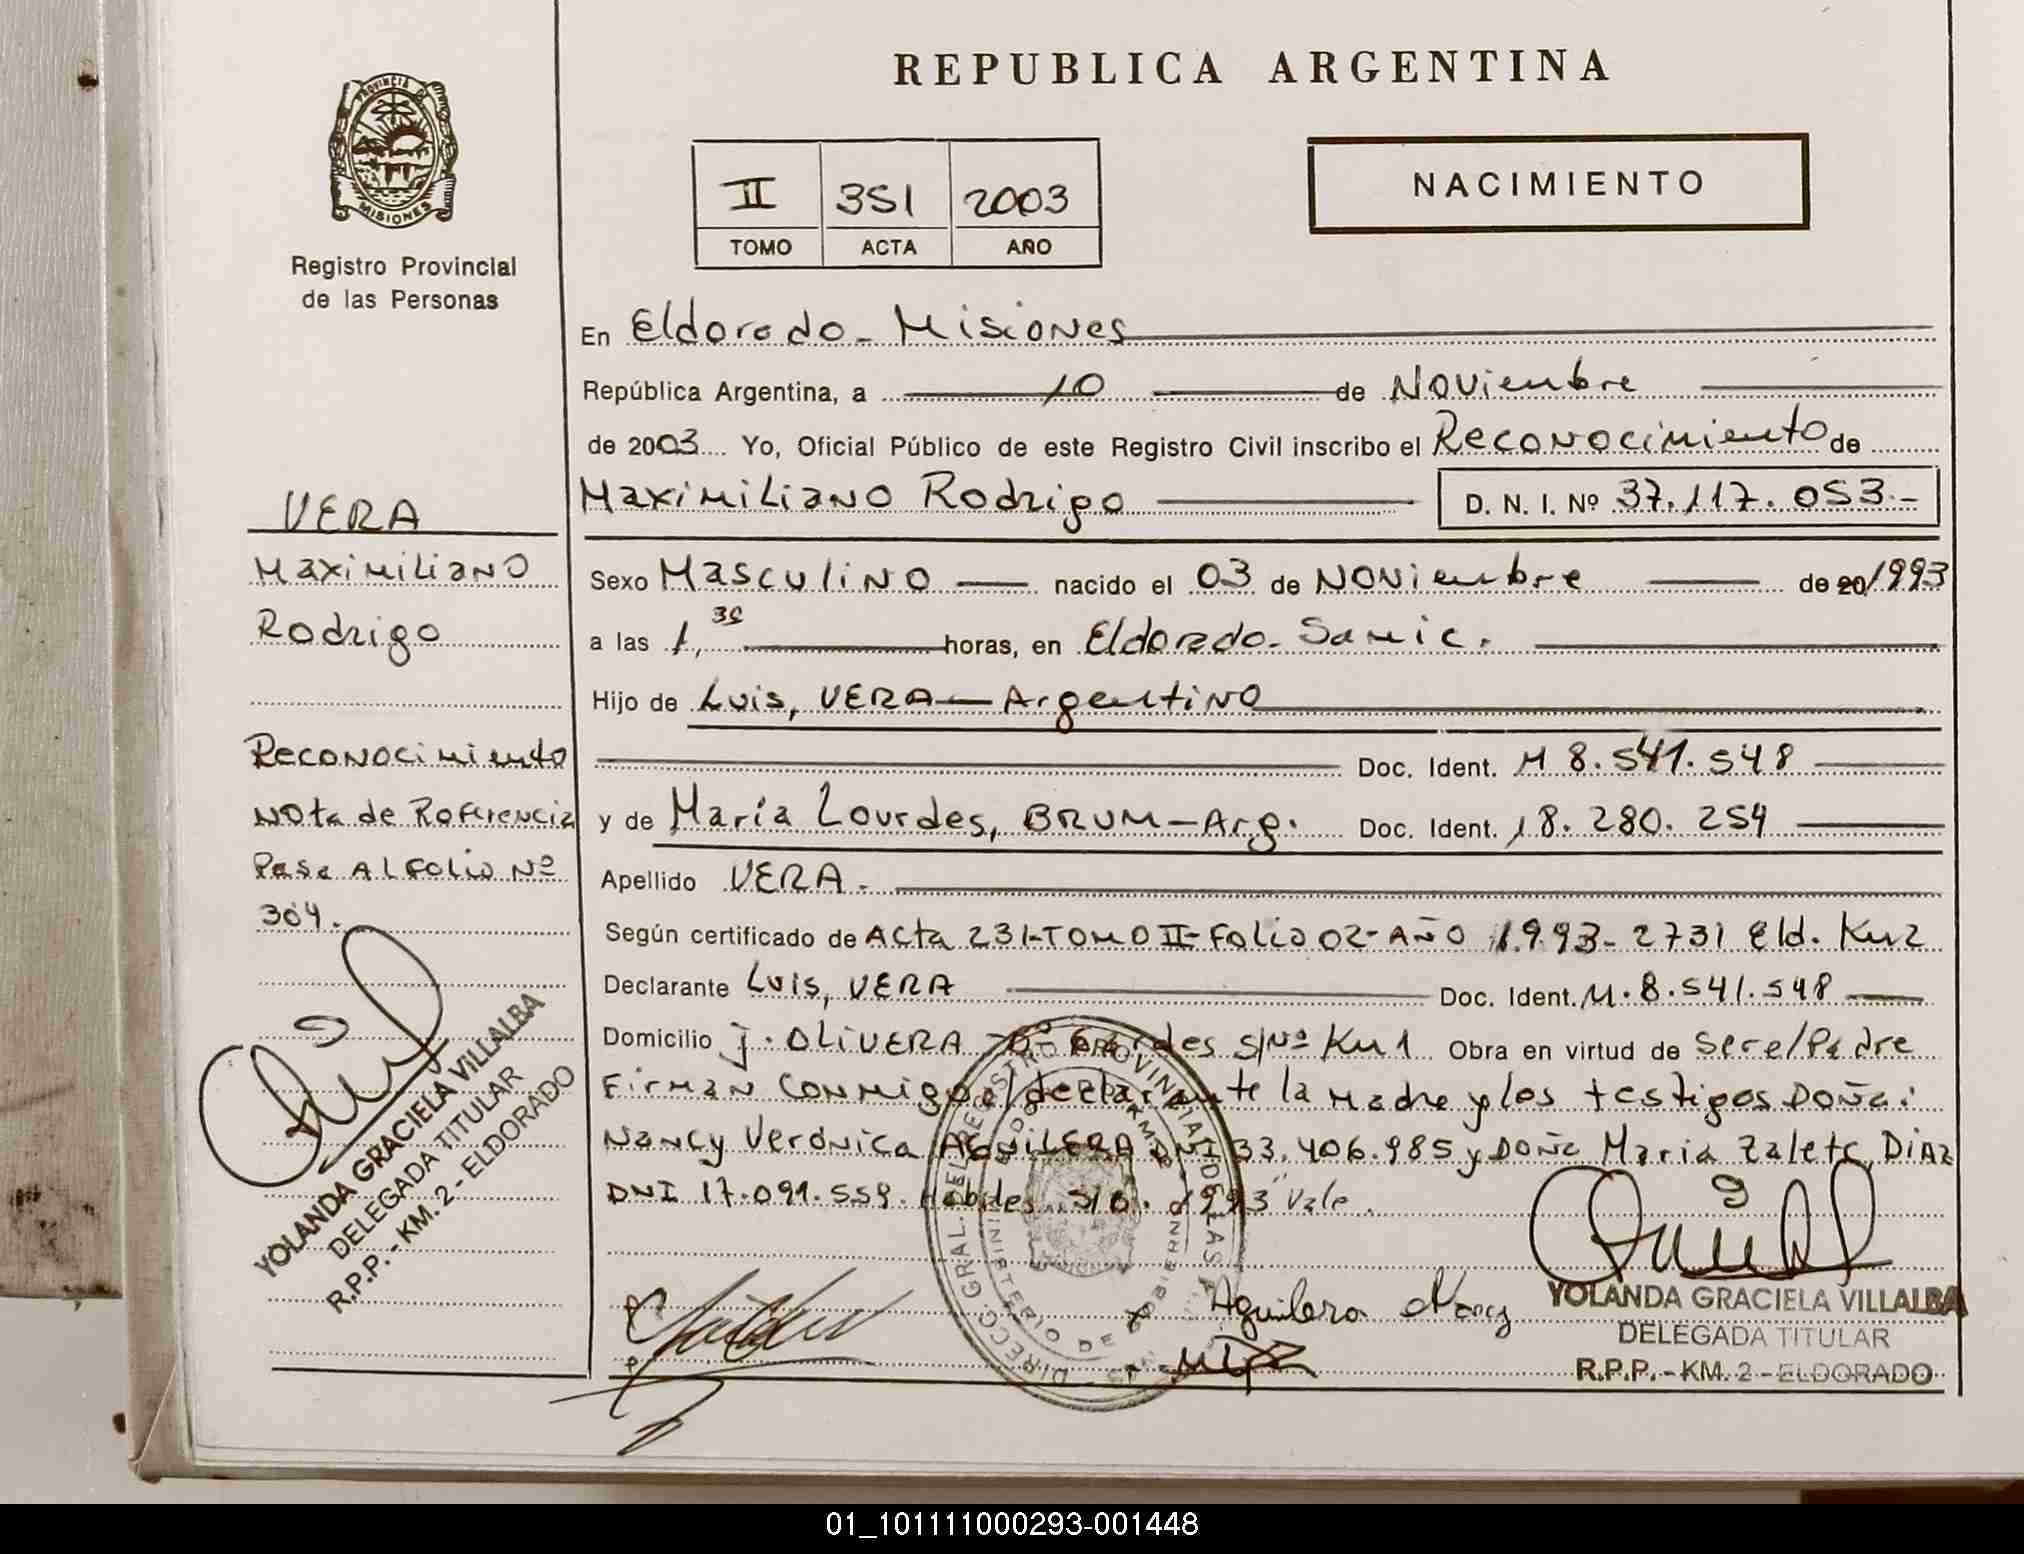 REPUBLICA ARGENTINA
PROVINCIA DE
MISIONES
Registro Provincial
de las Personas
II 351 2003
TOMO ACTA AÑO
NACIMIENTO
En Eldorado - Misiones
República Argentina, a 10 de Noviembre
de 2003 Yo, Oficial Público de este Registro Civil inscribo el Reconocimiento de
Maximiliano Rodrigo D. N. I. Nº 37.117.053.-
Sexo Masculino nacido el 03 de Noviembre de 20/1993
a las 1,30 horas, en Eldorado - Samic.
Hijo de Luis, VERA - Argentino
Doc. Ident. M 8.541.548
y de María Lourdes, BRUM - Arg. Doc. Ident. 18.280.254
Apellido VERA.
Según certificado de Acta 231-TOMO II-Folio 02-AÑO 1993-2731 Eld. Km2
Declarante Luis, VERA Doc. Ident. M.8.541.548
Domicilio J. OLIVERA s/Nº Km 1 Obra en virtud de Ser el Padre
Firman conmigo el declarante la Madre y los testigos DOÑA:
Nancy Verónica AGUILERA DNI 33.406.985 y DOÑA Maria DIAZ
DNI 17.091.559. Hábiles. S/B. 1993 "Vale.
VERA
Maximiliano
Rodrigo
Reconocimiento
Nota de Referencia
Pasa AL Folio Nº
304.
YOLANDA GRACIELA VILLALBA
DELEGADA TITULAR
R.P.P. - KM. 2 - ELDORADO
DIRECC. GRAL. DEL REGISTRO PROVINCIAL DE LAS
MINISTERIO DE GOBIERNO
Aguilera Nancy
YOLANDA GRACIELA VILLALBA
DELEGADA TITULAR
R.P.P. - KM. 2 - ELDORADO
01_101111000293-001448